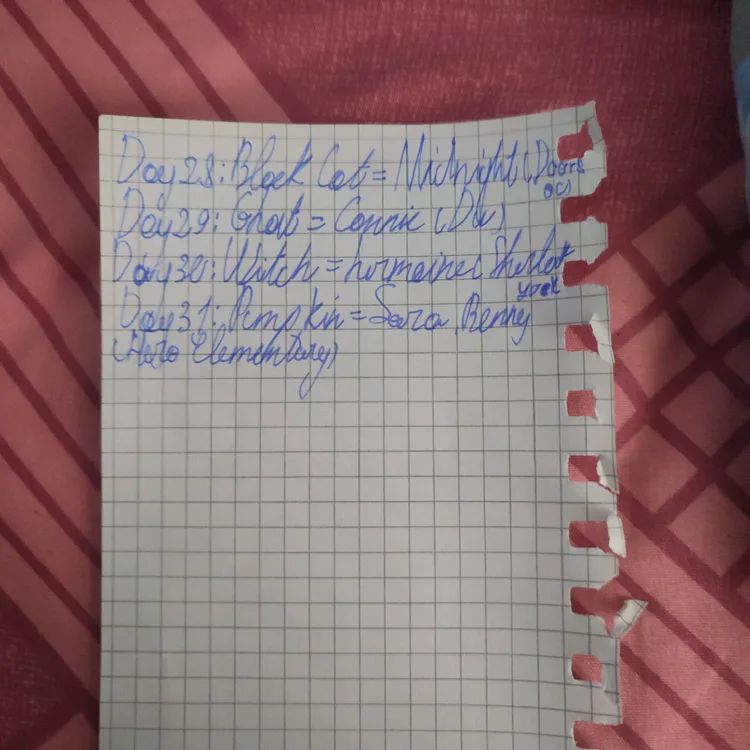 Day 28: Black Cat = Midnight (Doors
oc)
Day 29: Ghost = Connie (Du)
Day 30: Witch = hermaine
Day 31: Pumpkin = Sara Benny
(Hero Elementary)